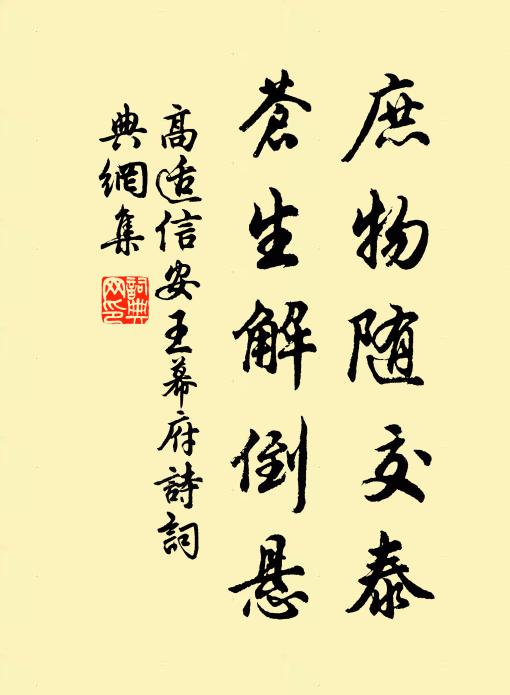 庶物随交泰
蒼生解倒悬
高适信安王幕府詩詞
典網集
詞典网印